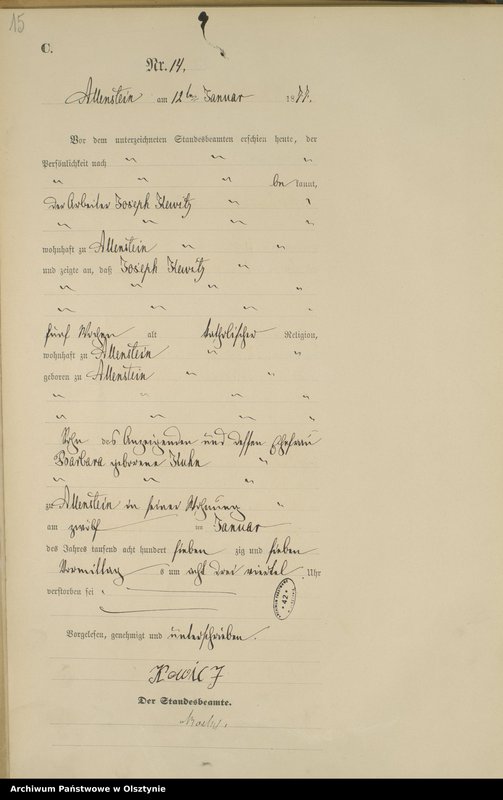 15
C.
Nr. 14.
Allenstein am 12ten Januar 1877.
Vor dem unterzeichneten Standesbeamten erschien heute, der
Persönlichkeit nach
be kannt,
der Arbeiter Joseph Kewitz
wohnhaft zu Allenstein
und zeigte an, daß Joseph Kewitz
fünf Wochen alt katholischer Religion,
wohnhaft zu Allenstein
geboren zu Allenstein
Sohn des Anzeigenden und dessen Ehefrau
Barbara geborene Kuhn
zu Allenstein in seiner Wohnung
am zwölf ten Januar
des Jahres tausend acht hundert sieben zig und sieben
Vormittag s um acht drei viertel Uhr
verstorben sei
Vorgelesen, genehmigt und unterschrieben.
Der Standesbeamte.
* 42 *
Archiwum Państwowe w Olsztynie